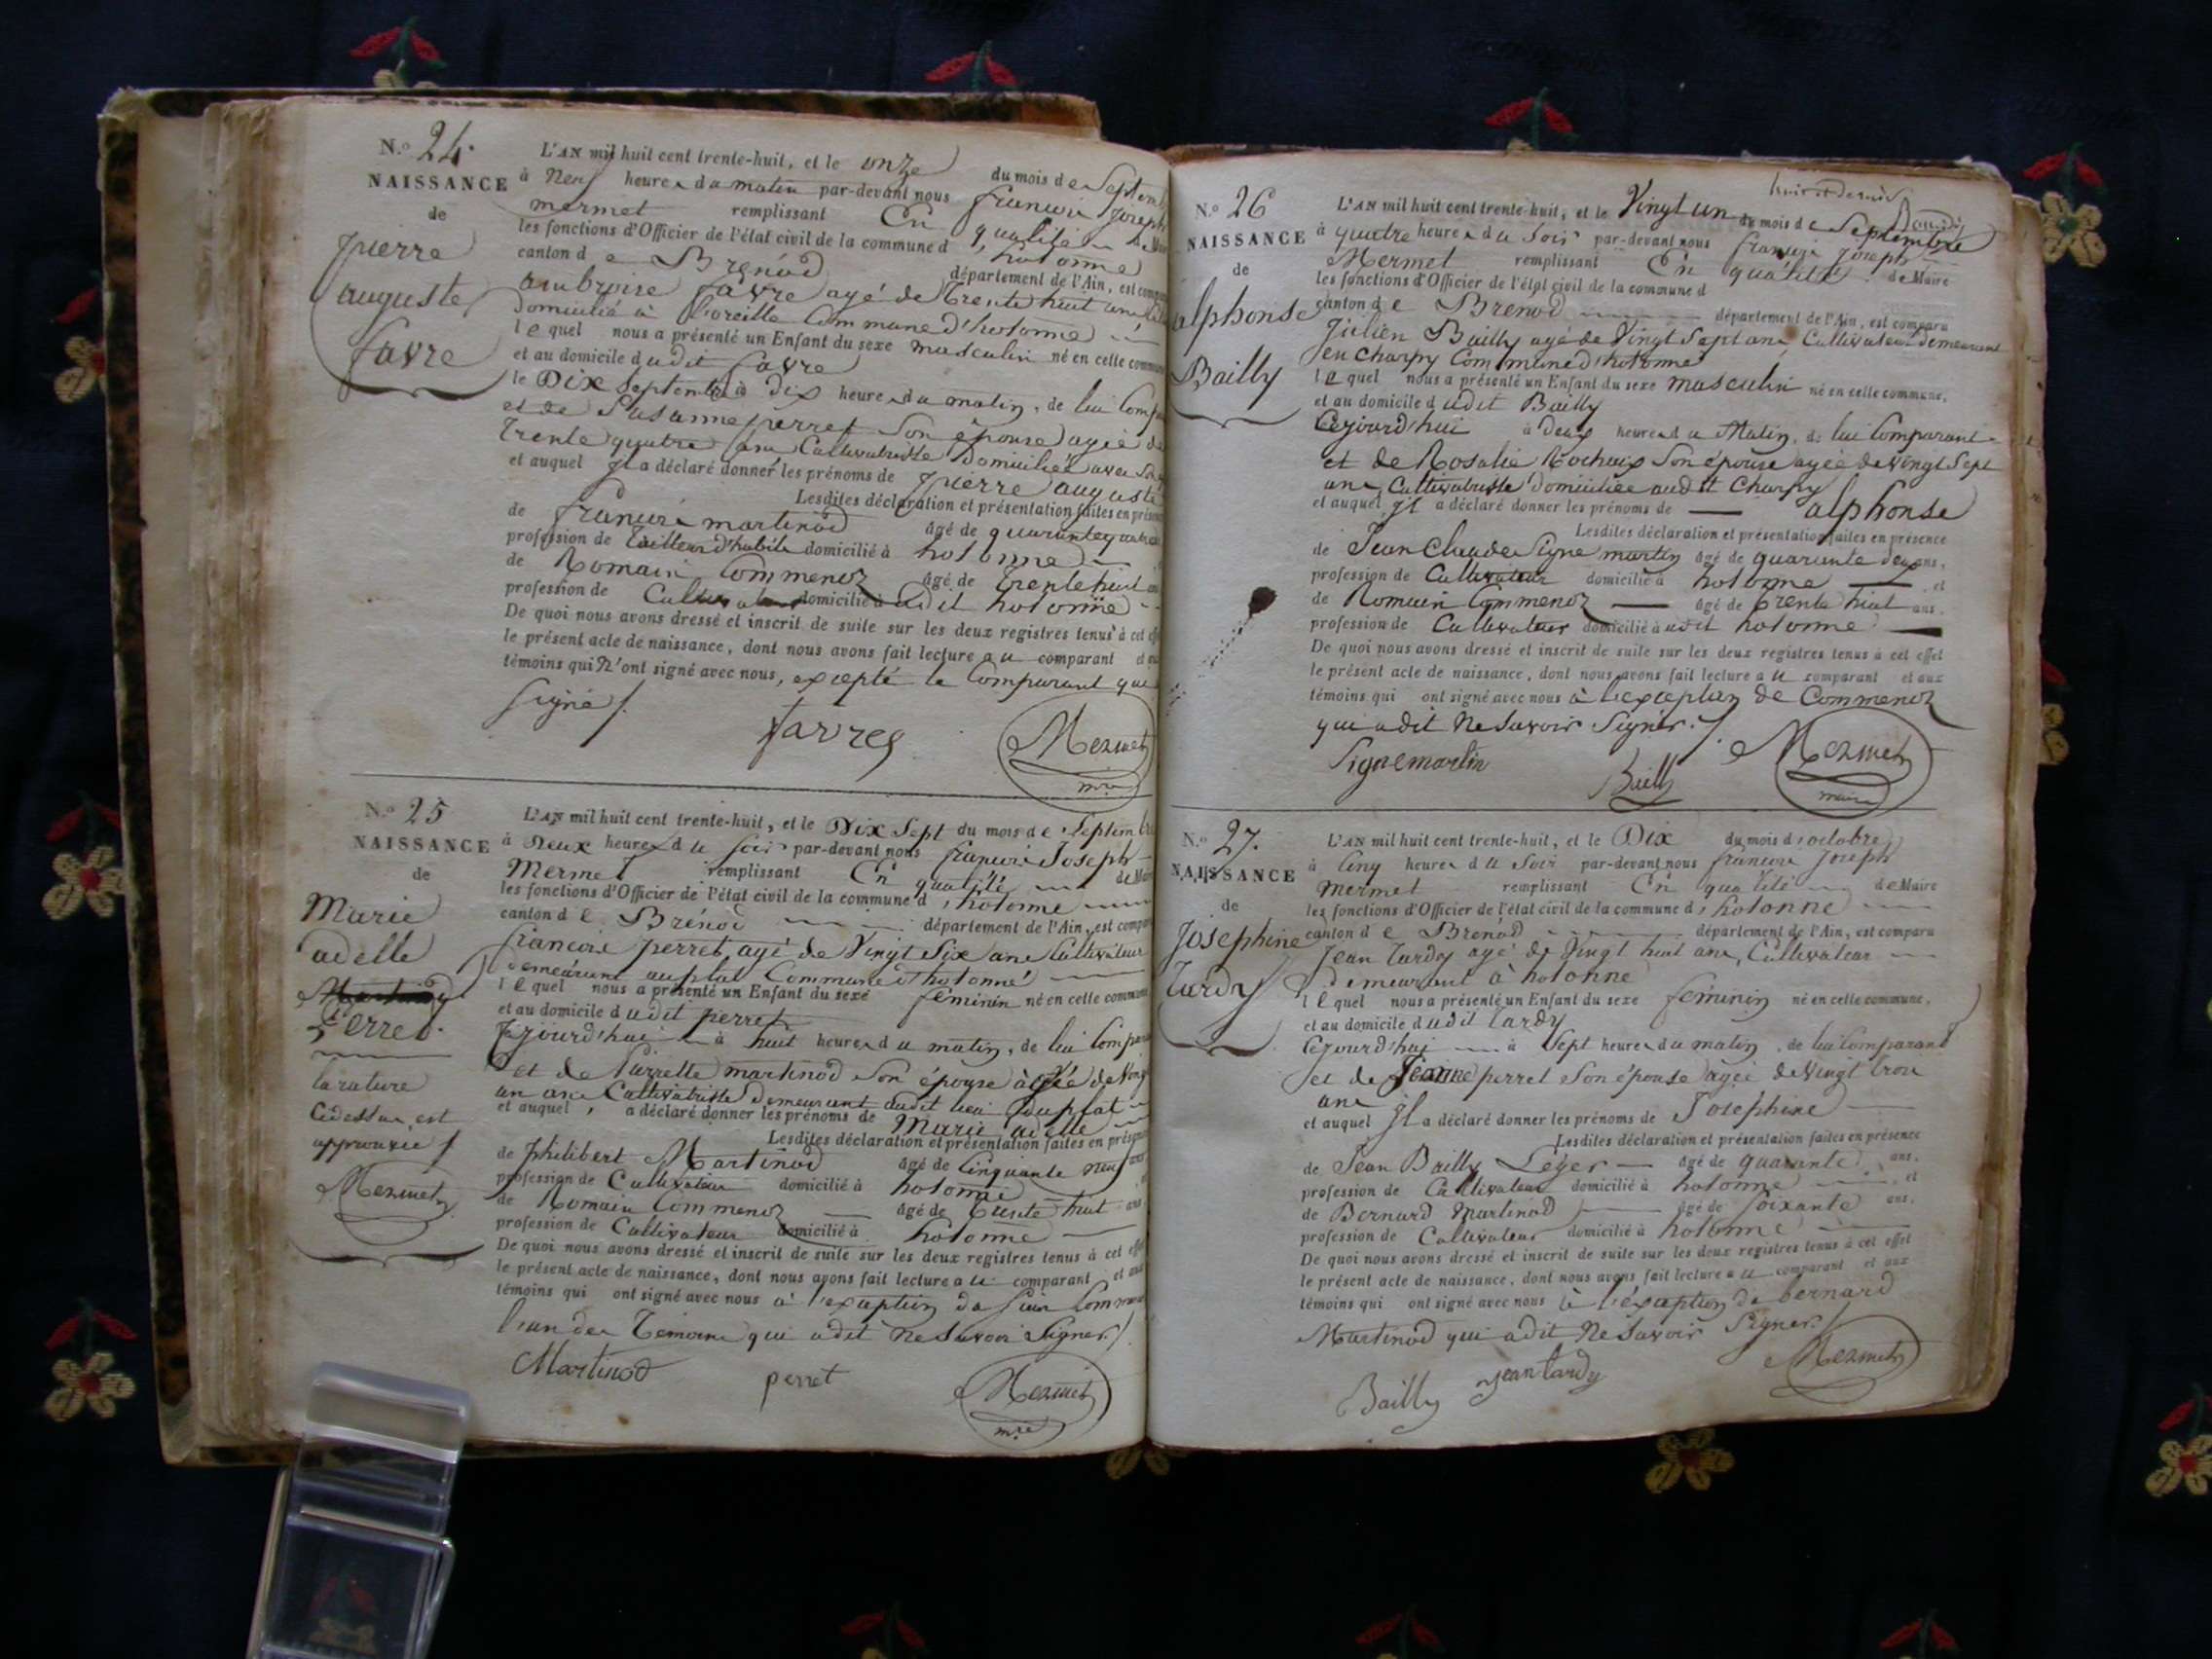 N.o 24.
NAISSANCE
de
pierre
auguste
favre
L'AN mil huit cent trente-huit, et le onze du mois de Septemb
à neuf heures du matin par-devant nous francois Joseph
mermet remplissant En qualité de Maire
les fonctions d'Officier de l'état civil de la commune d'hotonne
canton de Brénod département de l'Ain, est compa
ambroise favre agé de trente huit ans
domicilié à l'oreille Commune d'hotonne
lequel nous a présenté un Enfant du sexe masculin né en cette commune
et au domicile dudit favre
le Dix septembre à dix heures du matin, de lui Compa
et de Susanne perret Son épouse agée de
trente quatre ans Cultivatrice domiciliée avec
et auquel jl a déclaré donner les prénoms de pierre auguste
Lesdites déclaration et présentation faites en présence
de francois martinod âgé de quarante quatre
profession de tailleur d'habits domicilié à hotonne
de Romain Commenoz âgé de trente huit ans
profession de Cultivateur domicilié à udit hotonne
De quoi nous avons dressé et inscrit de suite sur les deux registres tenus à cet effet
le présent acte de naissance, dont nous avons fait lecture au comparant et aux
témoins qui n'ont signé avec nous, excepté le Comparant qui
signé /.
favre
Mermet
mre
N.o 25
NAISSANCE
de
Marie
adelle
Martinod
perret.
la rature
cidessus est
approuvée /
Mermet
L'AN mil huit cent trente-huit, et le Dix Sept du mois de Septembre
à Deux heures du soir par-devant nous francois Joseph
Mermet remplissant En qualité de Maire
les fonctions d'Officier de l'état civil de la commune d'hotonne
canton de Brénod département de l'Ain, est compa
francois perret, agé de Vingt Six ans Cultivateur
demeurant au plat Commune d'hotonne
lequel nous a présenté un Enfant du sexe féminin né en cette commune
et au domicile dudit perret
Cejourd'hui à huit heures du matin, de lui Compara
et de martinod son épouse agée de Vingt
un ans Cultivatrice demeurant audit lieu Duplat
et auquel, a déclaré donner les prénoms de Marie adelle
Lesdites déclaration et présentation faites en présence
de Philibert Martinod âgé de Cinquante neuf ans
profession de Cultivateur domicilié à hotonne
de Romain Commenoz âgé de trente huit ans
profession de Cultivateur domicilié à hotonne
De quoi nous avons dressé et inscrit de suite sur les deux registres tenus à cet effet
le présent acte de naissance, dont nous avons fait lecture au comparant et aux
témoins qui ont signé avec nous à l'exception de Commenoz
l'un des Témoins qui adit ne Savoir Signer /.
Martinod
perret
Mermet
mre
N.o 26
NAISSANCE
de
alphonse
Bailly
L'AN mil huit cent trente-huit, et le Vingt un du mois de Septembre
à quatre heures du Soir par-devant nous francois Joseph
Mermet remplissant En qualité de Maire
les fonctions d'Officier de l'état civil de la commune d
canton de Brenod département de l'Ain, est comparu
Julien Bailly agé de Vingt Sept ans, Cultivateur demeurant
en Charpy Commune d'hotonne
lequel nous a présenté un Enfant du sexe masculin né en cette commune,
et au domicile dudit Bailly
Cejourd'hui à deux heures du Matin, de lui Comparant
et de Rosalie Rochaix Son épouse agée de Vingt Sept
ans, Cultivatrice domiciliée audit Charpy
et auquel jl a déclaré donner les prénoms de alphonse
Lesdites déclaration et présentation faites en présence
de Jean Claude Signemartin âgé de quarante deux ans,
profession de Cultivateur domicilié à hotonne et
de Romain Commenoz âgé de trente huit ans.
profession de Cultivateur domicilié à udit hotonne
De quoi nous avons dressé et inscrit de suite sur les deux registres tenus à cet effet
le présent acte de naissance, dont nous avons fait lecture au comparant et aux
témoins qui ont signé avec nous à l'exception de Commenoz
qui adit ne Savoir Signer. /.
Signemartin
Bailly
Mermet
maire
N.o 27.
NAISSANCE
de
Josephine
Tardy
L'AN mil huit cent trente-huit, et le Dix du mois d'octobre
à Cinq heures du Soir par-devant nous francois Joseph
mermet remplissant En qualité de Maire
les fonctions d'Officier de l'état civil de la commune d'hotonne
canton de Brenod département de l'Ain, est comparu
Jean tardy agé de Vingt huit ans, Cultivateur
demeurant à hotonne
lequel nous a présenté un Enfant du sexe féminin né en cette commune,
et au domicile dudit tardy
Cejourd'hui à Sept heures du matin, de lui Comparant
et de Jeanne perret Son épouse agée de Vingt trois
ans
et auquel jl a déclaré donner les prénoms de Josephine
Lesdites déclaration et présentation faites en présence
de Jean Bailly Léger âgé de quarante ans,
profession de Cultivateur domicilié à hotonne et
de Bernard Martinod âgé de soixante ans.
profession de Cultivateur domicilié à hotonne
De quoi nous avons dressé et inscrit de suite sur les deux registres tenus à cet effet
le présent acte de naissance, dont nous avons fait lecture au comparant et aux
témoins qui ont signé avec nous à l'exception de bernard
Martinod qui adit ne Savoir Signer /
Bailly
jean tardy
Mermet